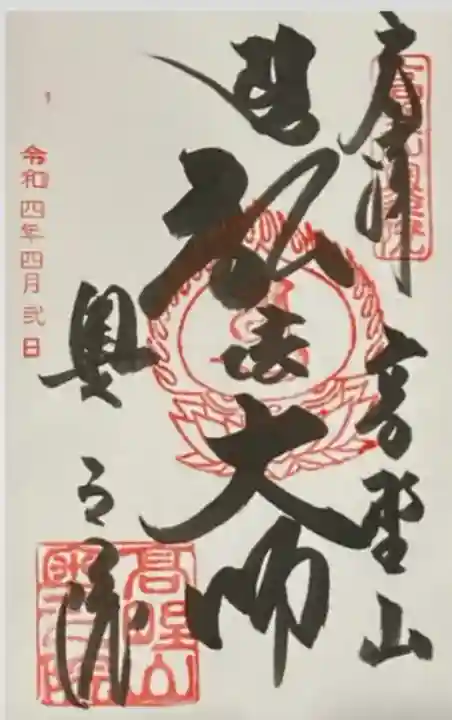 奉拝 高野山
弘法大師
奥之院
令和四年四月弐日
高野山奥之院